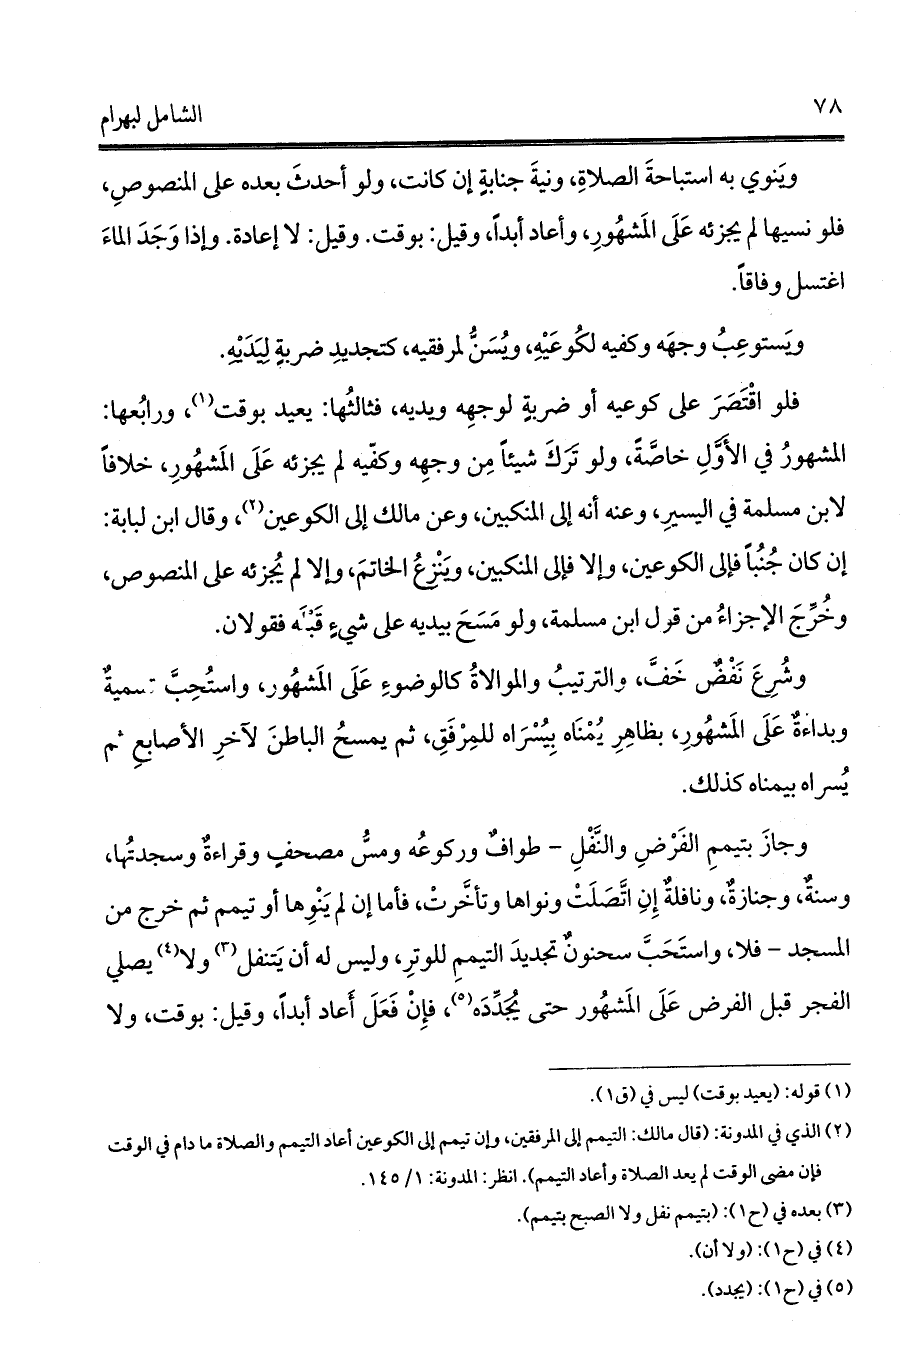 ٧٨
الشامل لبهرام
ويَنوي به استباحةَ الصلاةِ، ونيةَ جنابةٍ إن كانت، ولو أحدثَ بعده على المنصوصِ،
فلو نسيها لم يجزئه عَلَى المَشهُورِ، وأعاد أبداً، وقيل: بوقت. وقيل: لا إعادة. وإذا وَجَدَ الماءَ
اغتسل وفاقاً.
ويَستوعِبُ وجهَه وكفيه لكُوعَيْهِ، ويُسَنُّ لمرفقيه، كتجديدِ ضربةٍ لِيَدَيْهِ.
فلو اقْتَصَرَ على كوعيه أو ضربةٍ لوجهِه ويديه، فثالثُها: يعيد بوقت(١)، ورابعُها:
المشهورُ في الأَوَّلِ خاصَّةً، ولو تَرَكَ شيئاً مِن وجهِه وكفّيه لم يجزئه عَلَى المَشهُورِ، خلافاً
لابن مسلمة في اليسيرِ، وعنه أنه إلى المنكبين، وعن مالك إلى الكوعين(٢)، وقال ابن لبابة:
إن كان جُنُباً فإلى الكوعين، وإلا فإلى المنكبين، ويَنْزِعُ الخاتمَ، وإلا لم يُجزئه على المنصوص،
وخُرِّجَ الإجزاءُ من قول ابن مسلمة، ولو مَسَحَ بيديه على شيءٍ قَبْلَه فقولان.
وشُرِعَ نَفْضٌ خَفَّ، والترتيبُ والموالاةُ كالوضوءِ عَلَى المَشهُور، واستُحِبَّ تسميةٌ
وبداءةٌ عَلَى المَشهُورِ، بظاهرِ يُمْنَاه بِيُسْرَاه للمِرْفَقِ، ثم يمسحُ الباطنَ لآخرِ الأصابعِ ثم
يُسراه بيمناه كذلك.
وجازَ بتيممِ الفَرْضِ والنَّفْلِ - طوافٌ وركوعُه ومسُّ مصحفٍ وقراءةٌ وسجدتُها،
وسنةٌ، وجنازةٌ، ونافلةٌ إِنِ اتَّصَلَتْ ونواها وتأخَّرتْ، فأما إن لم يَنْوِها أو تيمم ثم خرج من
المسجد - فلا، واستَحَبَّ سحنونٌ تجديدَ التيممِ للوترِ، وليس له أن يَتنفل(٣) ولا(٤) يصلي
الفجر قبل الفرض عَلَى المَشهُور حتى يُجَدِّدَه(٥)، فإنْ فَعَلَ أَعاد أبداً، وقيل: بوقت، ولا
(١) قوله: (يعيد بوقت) ليس في (ق١).
(٢) الذي في المدونة: (قال مالك: التيمم إلى المرفقين، وإن تيمم إلى الكوعين أعاد التيمم والصلاة ما دام في الوقت
فإن مضى الوقت لم يعد الصلاة وأعاد التيمم). انظر: المدونة: ١/ ١٤٥.
(٣) بعده في (ح١): (بتيمم نفل ولا الصبح بتيمم).
(٤) في (ح١): (ولا أن).
(٥) في (ح١): (يجدد).